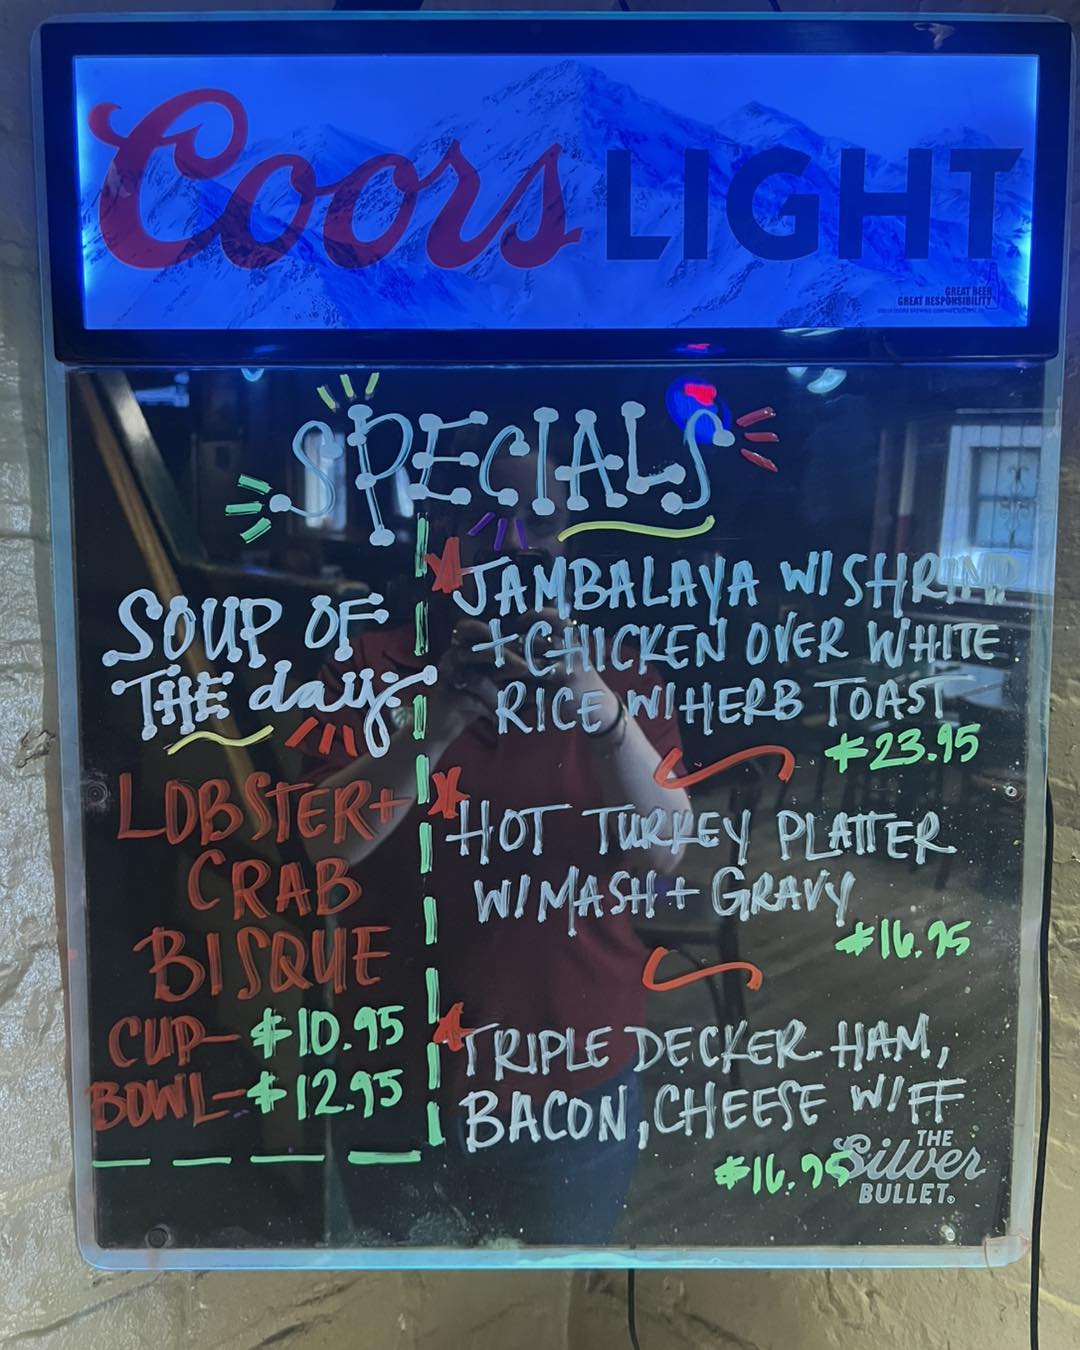 Coors LIGHT
GREAT BEER
GREAT RESPONSIBILITY
SPECIALS
SOUP OF
THE day
LOBSTER +
CRAB
BISQUE
CUP- $10.95
BOWL- $12.95
JAMBALAYA W/ SHRIMP
+ CHICKEN OVER WHITE
RICE W/ HERB TOAST
$23.95
HOT TURKEY PLATTER
W/ MASH + GRAVY
$16.95
TRIPLE DECKER HAM,
BACON, CHEESE W/ FF
$16.95
THE
Silver
BULLET®